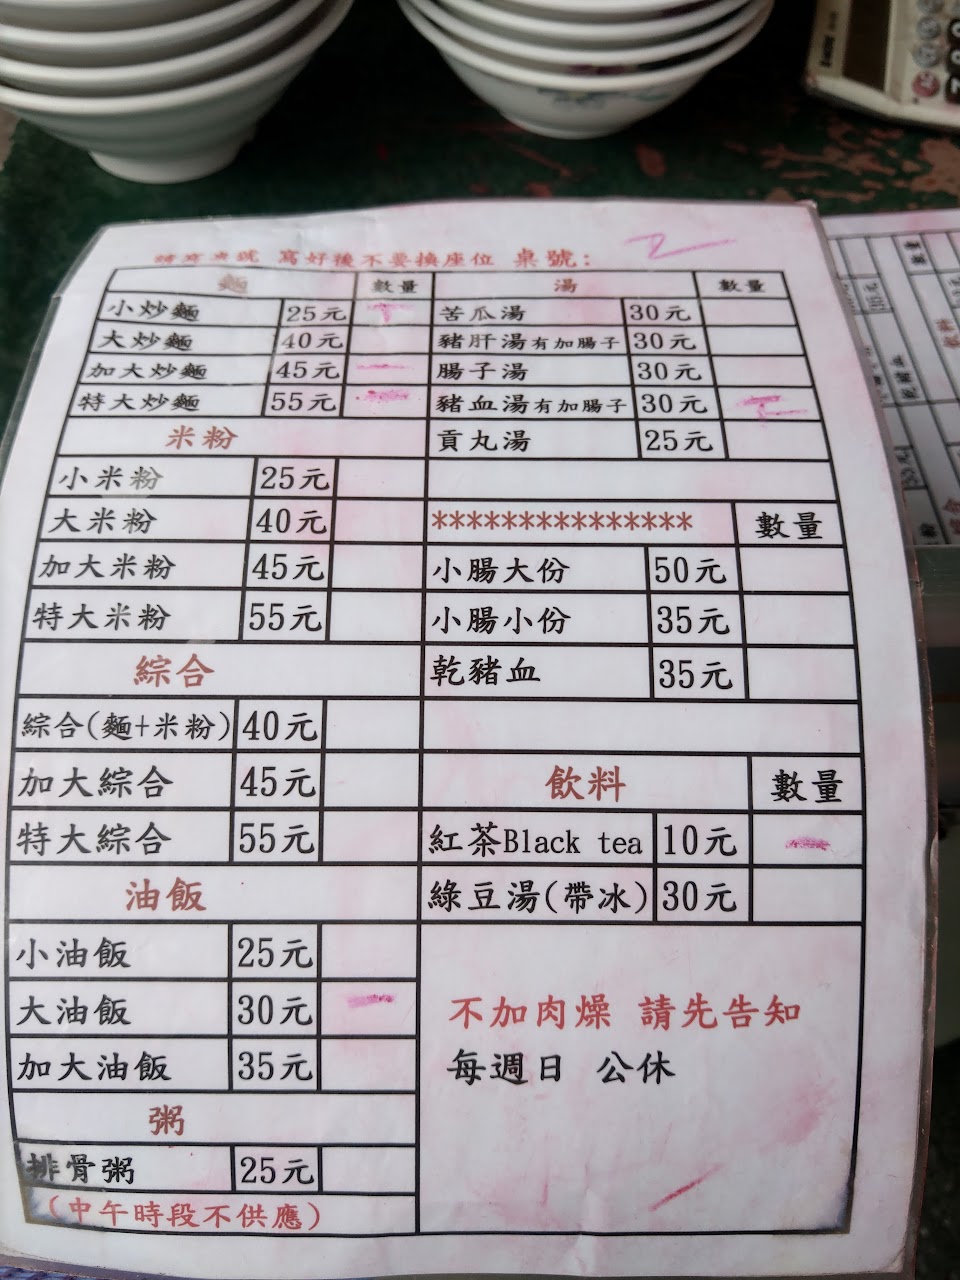 請寫桌號 寫好後不要換座位 桌號:
麵 數量 湯 數量
小炒麵 25元 苦瓜湯 30元
大炒麵 40元 豬肝湯有加腸子 30元
加大炒麵 45元 一 腸子湯 30元
特大炒麵 55元 豬血湯有加腸子 30元
米粉 貢丸湯 25元
小米粉 25元
大米粉 40元 *************** 數量
加大米粉 45元 小腸大份 50元
特大米粉 55元 小腸小份 35元
綜合 乾豬血 35元
綜合(麵+米粉) 40元
加大綜合 45元 飲料 數量
特大綜合 55元 紅茶Black tea 10元 一
油飯 綠豆湯(帶冰) 30元
小油飯 25元
大油飯 30元 一
加大油飯 35元
粥
排骨粥 25元
(中午時段不供應)
不加肉燥 請先告知
每週日 公休